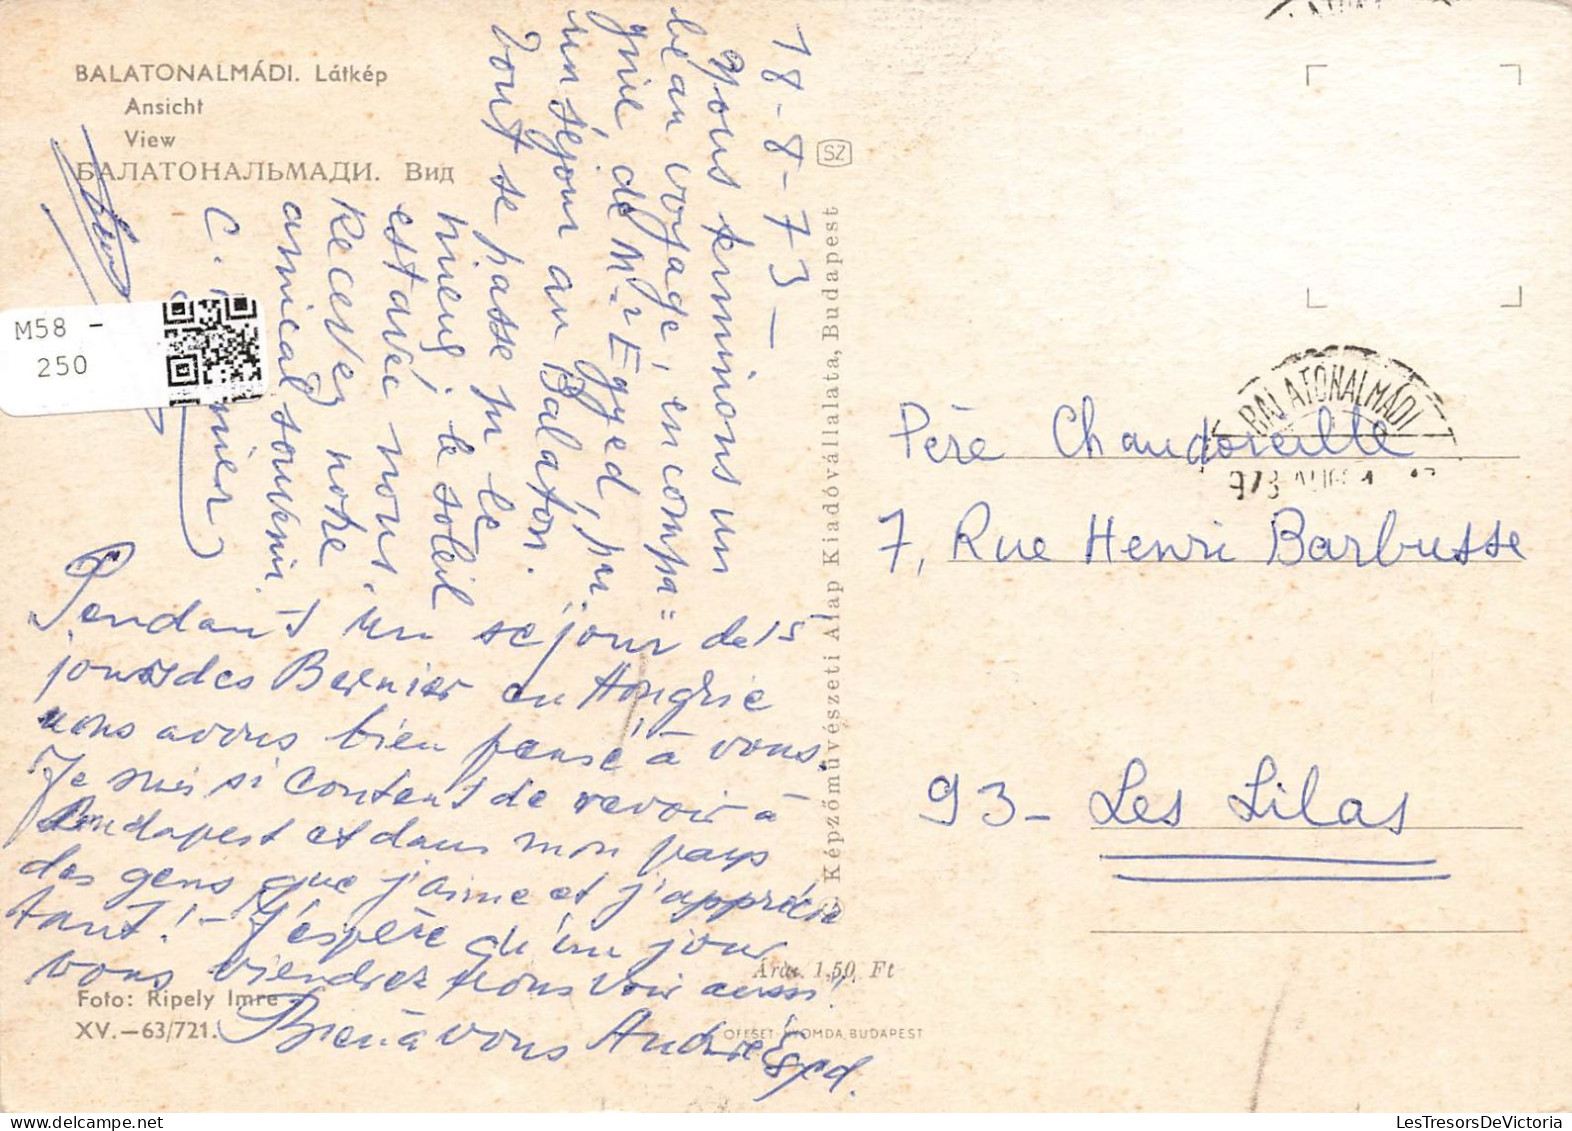 BALATONALMÁDI. Látkép
Ansicht
View
БАЛАТОНАЛЬМАДИ. Вид
M58 -
250
18-8-73 —
Nous terminons un
beau voyage, en compa=
gnie de Mr Egyed, par
un séjour au Balaton.
Tout se passe pour le
mieux, le soleil
est avec nous.
Recevez notre
amical souvenir
Pendant un séjour de 15
jours des Bernier en Hongrie
nous avons bien pensé à vous.
Je suis si content de revoir à
Budapest et dans mon pays
des gens que j'aime et j'apprécie
tant! - J'espère qu'un jour
vous viendrez nous voir aussi!
Bien à vous André Egyed.
SZ
© Képzőművészeti Alap Kiadóvállalata, Budapest
Ára: 1,50 Ft
Foto: Ripely Imre
XV.—63/721.
OFFSET NYOMDA, BUDAPEST
BALATONALMÁDI
Père Chandoreille
7, Rue Henri Barbusse
93 - Les Lilas
LesTresorsDeVictoria.com